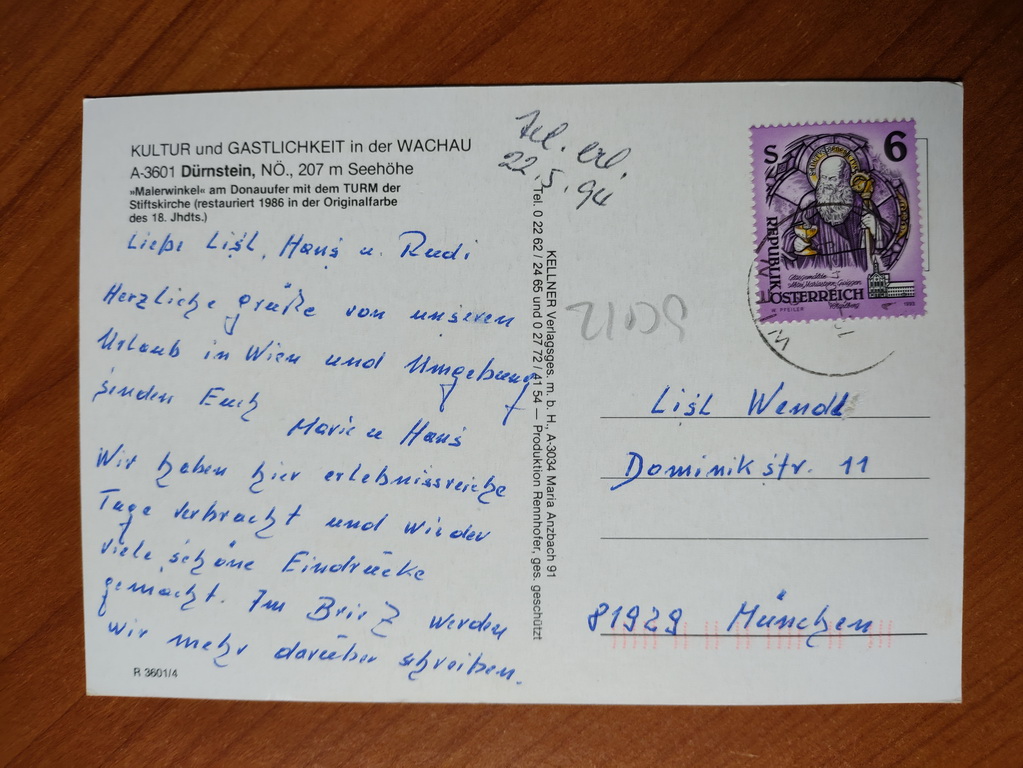 KULTUR und GASTLICHKEIT in der WACHAU
A-3601 Dürnstein, NÖ., 207 m Seehöhe
»Malerwinkel« am Donauufer mit dem TURM der
Stiftskirche (restauriert 1986 in der Originalfarbe
des 18. Jhdts.)
Tel. erl.
22.5.94
Liebe Lisl, Hans u. Rudi
Herzliche Grüße von unseren
Urlaub in Wien und Umgebung
senden Euch
Marie u Hans
Wir haben hier erlebnissreiche
Tage verbracht und wieder
viele schöne Eindrücke
gemacht. Im Brief werden
wir mehr darüber schreiben.
R 3601/4
KELLNER Verlagsges. m. b. H., A-3034 Maria Anzbach 91
Tel. 0 22 62 / 24 65 und 0 27 72 / 41 54 — Produktion Rennhofer, ges. geschützt
S 6
REPUBLIK
ÖSTERREICH
W. PFEILER
1993
WIEN
Lisl Wendl
Dominikstr. 11
81929 München